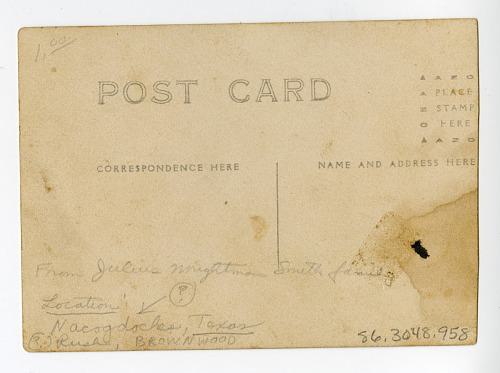 1.00
POST CARD
AZO
PLACE
STAMP
HERE
AZO
CORRESPONDENCE HERE
NAME AND ADDRESS HERE
From Julius Smith family
Location: (?)
Nacogdoches, Texas
(?) Rusk, BROWNWOOD
86.3048.958